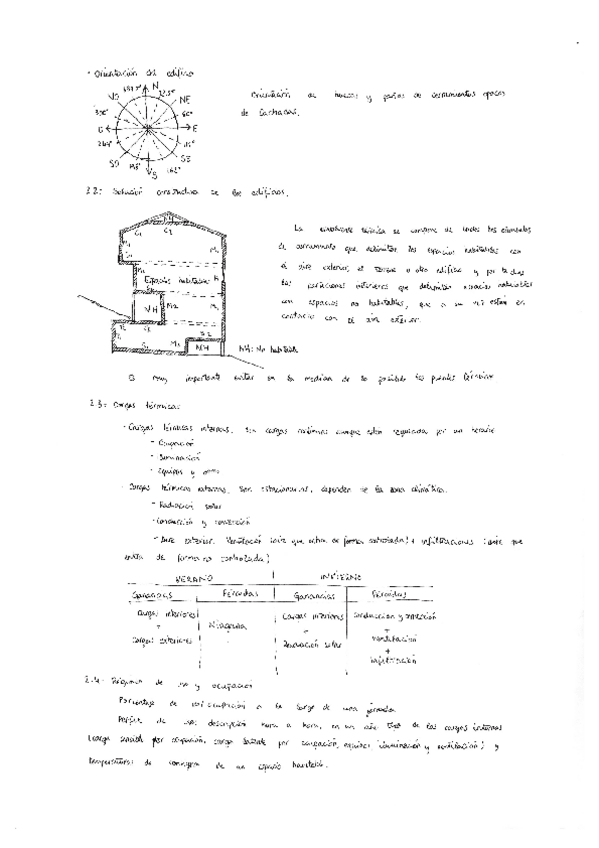 · Orientación del edificio
N
NE
E
SE
S
SO
O
Orientación de huecos y partes de cerramientos opacos
de fachadas.
2.2: Solución constructiva de los edificios.
La envolvente térmica se compone de todos los elementos
de cerramiento que delimitan los espacios habitables con
el aire exterior, el terreno u otro edificio y por todas
las particiones interiores que delimitan espacios habitables
con espacios no habitables, que a su vez están en
contacto con el aire exterior.
Espacio habitable
NH
NH
NH
NH: No habitable
Es muy importante evitar en la medida de lo posible los puentes térmicos
2.3: Cargas térmicas
- Cargas térmicas internas. Son cargas aunque estén por un horario
- Ocupación
- Iluminación
- Equipos y otros
- Cargas térmicas externas. Son estacionarias, dependen de la zona climática.
- Radiación solar
- Conducción y convección
- Aire exterior. Ventilación (aire que entra de forma controlada) e infiltraciones (aire que
entra de forma no controlada)
VERANO INVIERNO
Ganancias Pérdidas Ganancias Pérdidas
Cargas interiores Ninguna Cargas interiores Conducción y convección
+ + +
Cargas exteriores Radiación solar Ventilación
+
Infiltración
2.4: Régimen de uso y ocupación
Porcentaje de ocupación a lo largo de una jornada
Perfil de uso: descripción hora a hora, en un año tipo de las cargas internas
(carga sensible por ocupación, carga latente por ocupación, equipos, iluminación y ventilación) y
temperaturas de consigna de un espacio habitable.